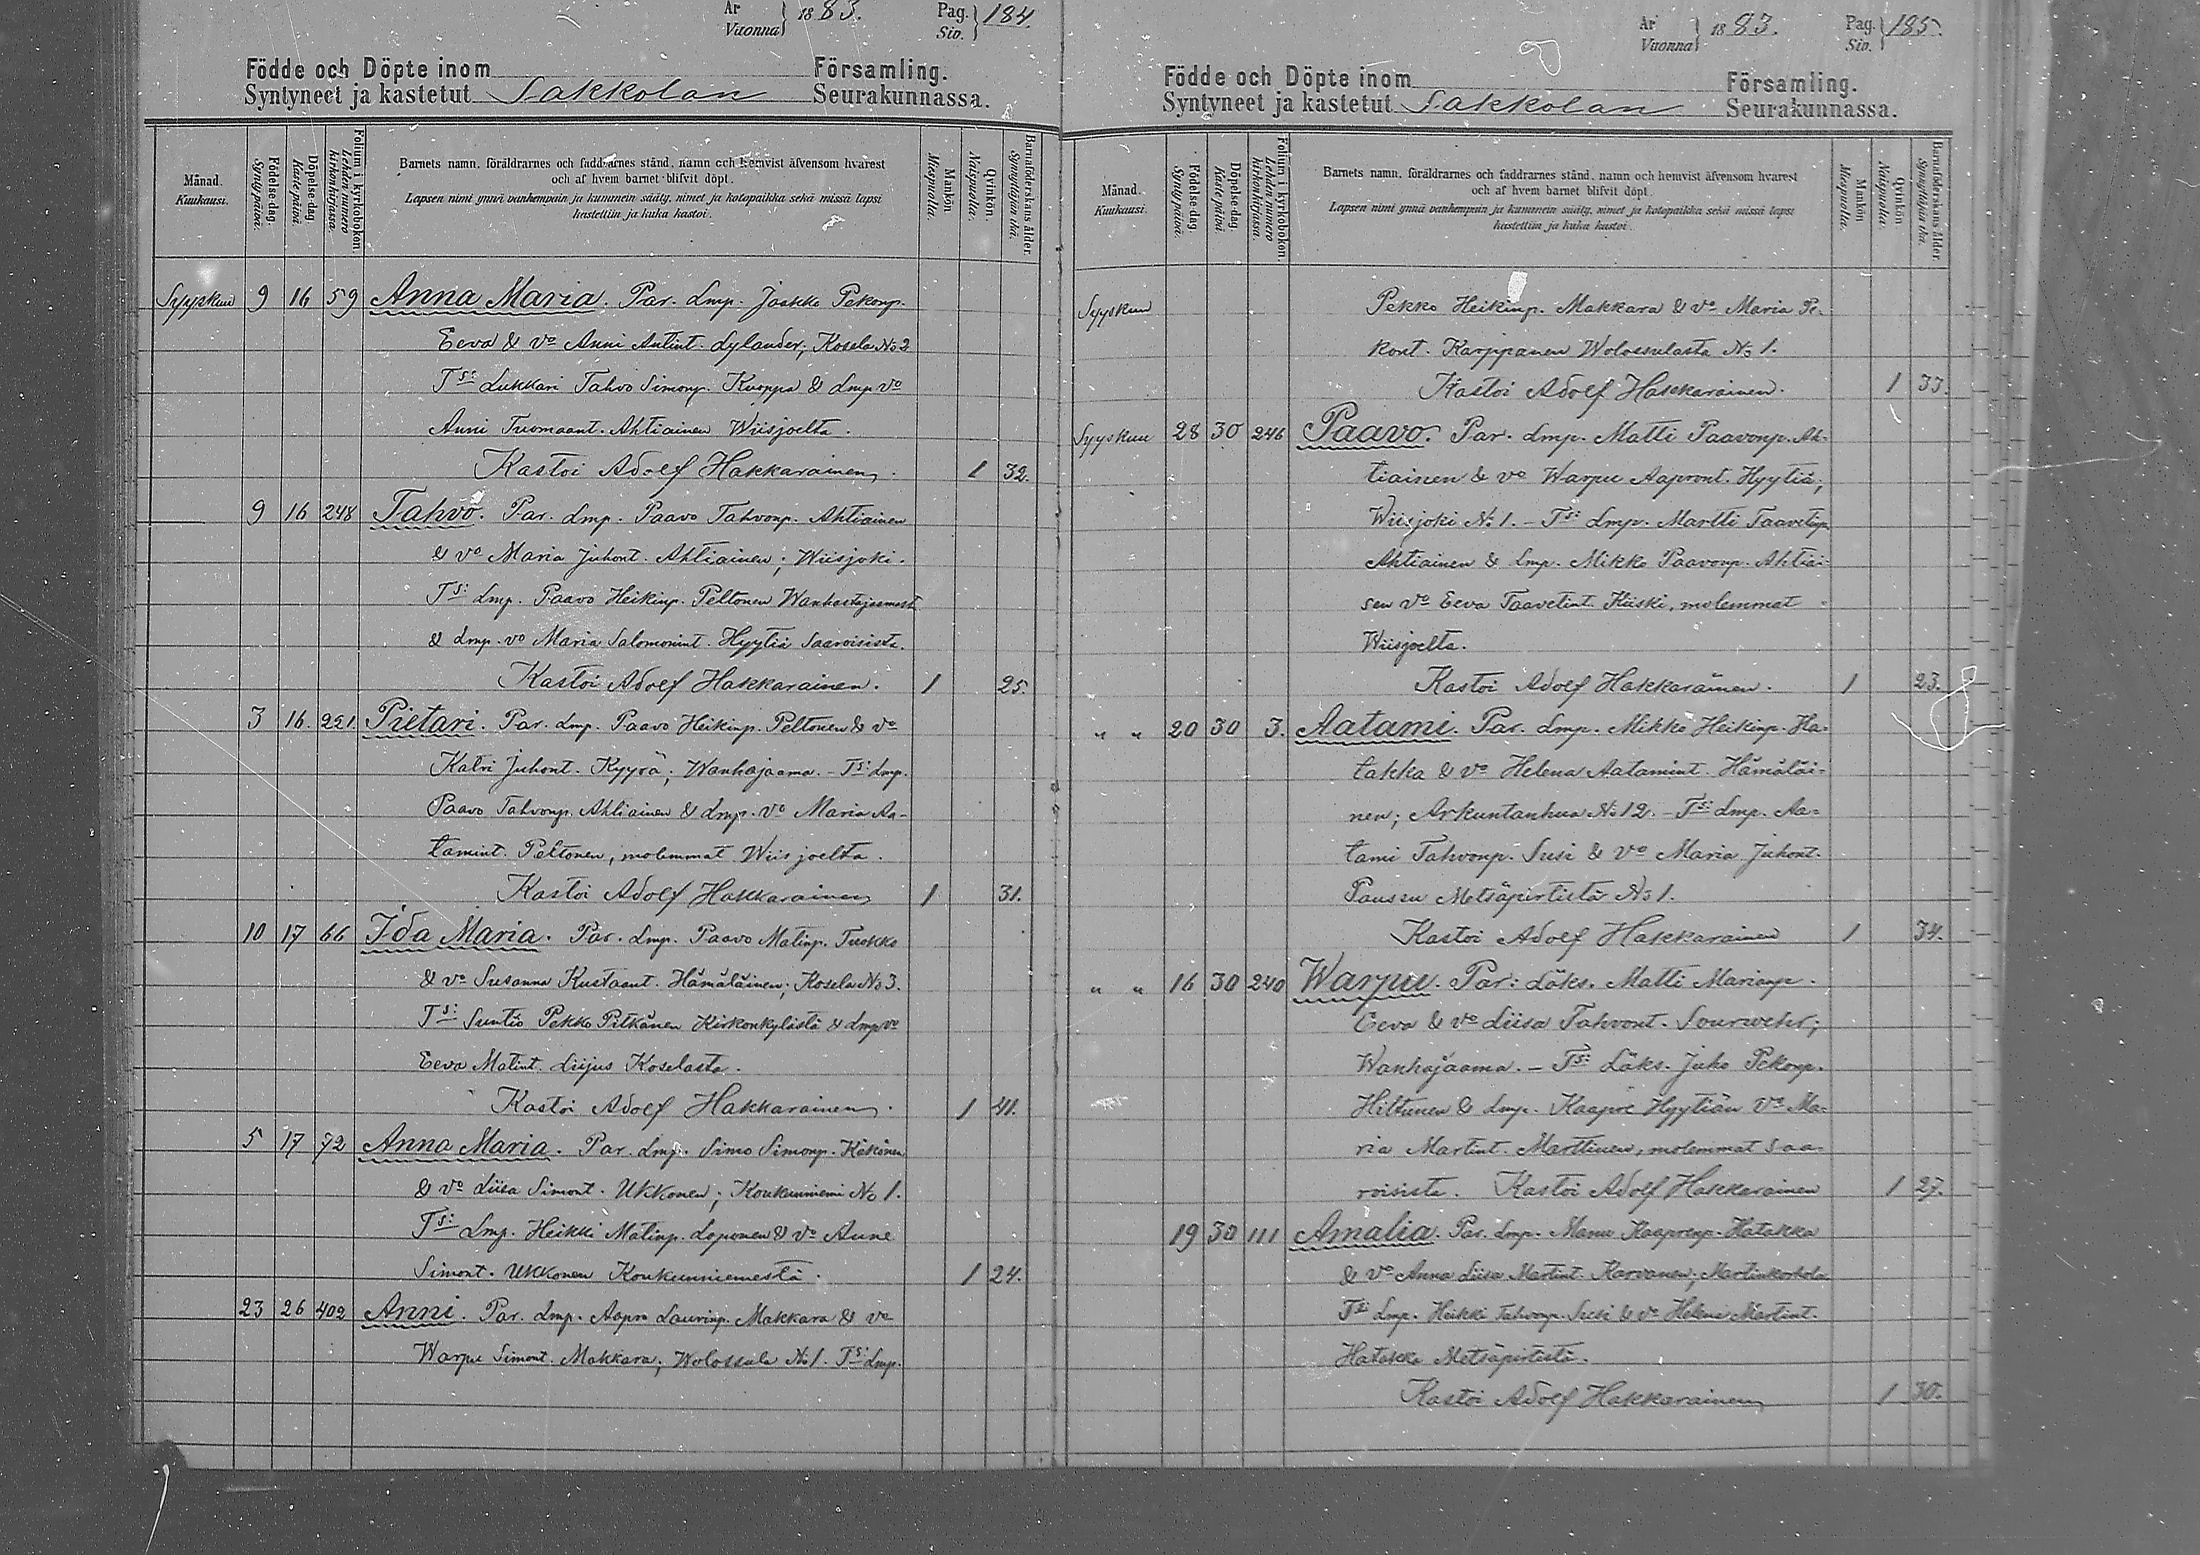 År
Vuonna } 1883. Pag.
Siv. } 184.
Födde och Döpte inom Församling.
Syntyneet ja kastetut Sakkolan Seurakunnassa.
Månad.
Kuukausi.
Födelse-dag.
Syntypäivä.
Döpelse-dag.
Kastepäivä.
Folium i kyrkobokon.
Lehden numero kirkonkirjassa.
Barnets namn, föräldrarnes och faddrarnes stånd, namn och hemvist äfvensom hvarest
och af hvem barnet blifvit döpt.
Lapsen nimi ynnä vanhempain ja kummein sääty, nimet ja kotopaikka sekä missä lapsi
kastettiin ja kuka kastoi.
Mankön
Miespuolia.
Qvinkön.
Naispuolia.
Barnaföderskans ålder.
Synnyttäjän ikä.
Syyskuu 9 16 59 Anna Maria. Par. Lmp. Jaakko Pekonp.
Eeva & vo Anni Antint. Lylander; Kosela No 2
Tsi Lukkari Tahvo Simonp. Kuoppa & Lmp vo
Anni Tuomaant. Ahtiainen Wiisjoelta.
Kastoi Adolf Hakkarainen. 1 32.
9 16 248 Tahvo. Par. Lmp. Paavo Tahvonp. Ahtiainen
& vo Maria Juhont. Ahtiainen; Wiisjoki.
Tsi Lmp. Paavo Heikinp. Peltonen Wanhastajaamasta
& Lmp. vo Maria Salomonint. Hyytiä Saaroisista.
Kastoi Adolf Hakkarainen. 1 25.
3 16. 251. Pietari. Par. Lmp. Paavo Heikinp. Peltonen & vo
Katri Juhont. Kyyrä; Wanhajaama. - Tsi Lmp.
Paavo Tahvonp. Ahtiainen & Lmp. vo Maria Aa-
tamint. Peltonen, molemmat Wiisjoelta.
Kastoi Adolf Hakkarainen 1 31.
10 17 66 Ida Maria. Par. Lmp. Paavo Matinp. Tuokko
& vo Susanna Kustaant. Hämäläinen; Kosela No 3.
Tsi Suntio Pekko Pitkänen Kirkonkylästä & Lmp vo
Eeva Matint. Liijus Koselasta.
Kastoi Adolf Hakkarainen. 1 41.
5 17 72 Anna Maria. Par. Lmp. Simo Simonp. Käkönen
& vo Liisa Simont. Ukkonen; Koukunniemi No 1.
Tsi Lmp. Heikki Matinp. Loponen & vo Anne
Simont. Ukkonen Koukunniemestä. 1 24.
23 26 402 Anni. Par. Lmp. Aapro Laurinp. Makkara & vo
Warpu Simont. Makkara; Wolossula No 1. Tsi Lmp.
År
Vuonna } 1883. Pag.
Siv. } 185.
Födde och Döpte inom Församling.
Syntyneet ja kastetut Sakkolan Seurakunnassa.
Månad.
Kuukausi.
Födelse-dag
Syntypäivä.
Döpelse-dag
Kastepäivä
Folium i kyrkobokon
Lehden numero kirkonkirjassa.
Barnets namn, föräldrarnes och faddrarnes stånd, namn och hemvist äfvensom hvarest
och af hvem barnet blifvit döpt.
Lapsen nimi ynnä vanhempain ja kummein sääty, nimet ja kotopaikka sekä missä lapsi
kastettiin ja kuka kastoi.
Mankön
Miespuolia.
Qvinkön
Naispuolia.
Barnaföderskans ålder
Synnyttäjän ikä.
Syyskuu Pekko Heikinp. Makkara & vo Maria Pe-
kont. Karppanen Wolossulasta No 1.
Kastoi Adolf Hakkarainen. 1 33.
Syyskuu 28 30 246 Paavo. Par. Lmp. Matti Paavonp. Ah-
tiainen & vo Warpu Aapront. Hyytiä;
Wiisjoki No 1. - Tsi Lmp. Martti Taavetinp.
Ahtiainen & Lmp. Mikko Paavonp. Ahtiai-
sen vo Eeva Taavetint. Kiiski, molemmat
Wiisjoelta.
Kastoi Adolf Hakkarainen. 1 23.
" " 20 30 3. Aatami. Par. Lmp. Mikko Heikinp. Ha-
takka & vo Helena Aatamint. Hämäläi-
nen; Arkuntanhua No 12. - Tsi Lmp. Aa-
tami Tahvonp. Susi & vo Maria Juhont.
Paussu Metsäpirtistä No 1.
Kastoi Adolf Hakkarainen 1 34.
" " 16 30 240 Warpu. Par: Läks. Matti Marianp.
Eeva & vo Liisa Tahvont. Sourwehr;
Wanhajaama. - Tsi Läks. Juho Pekonp.
Hiltunen & Lmp. Kaapre Hyytiän vo Ma-
ria Martint. Marttinen, molemmat Saa-
roisista. Kastoi Adolf Hakkarainen 1 27.
19 30 111 Amalia. Par. Lmp. Manu Kaaprenp. Hatakka
& vo Anna Liisa Martint. Karvanen; Martinkorhola
Tsi Lmp. Heikki Tahvonp. Susi & vo Helena Martint.
Hatakka Metsäpirtistä.
Kastoi Adolf Hakkarainen 1 30.